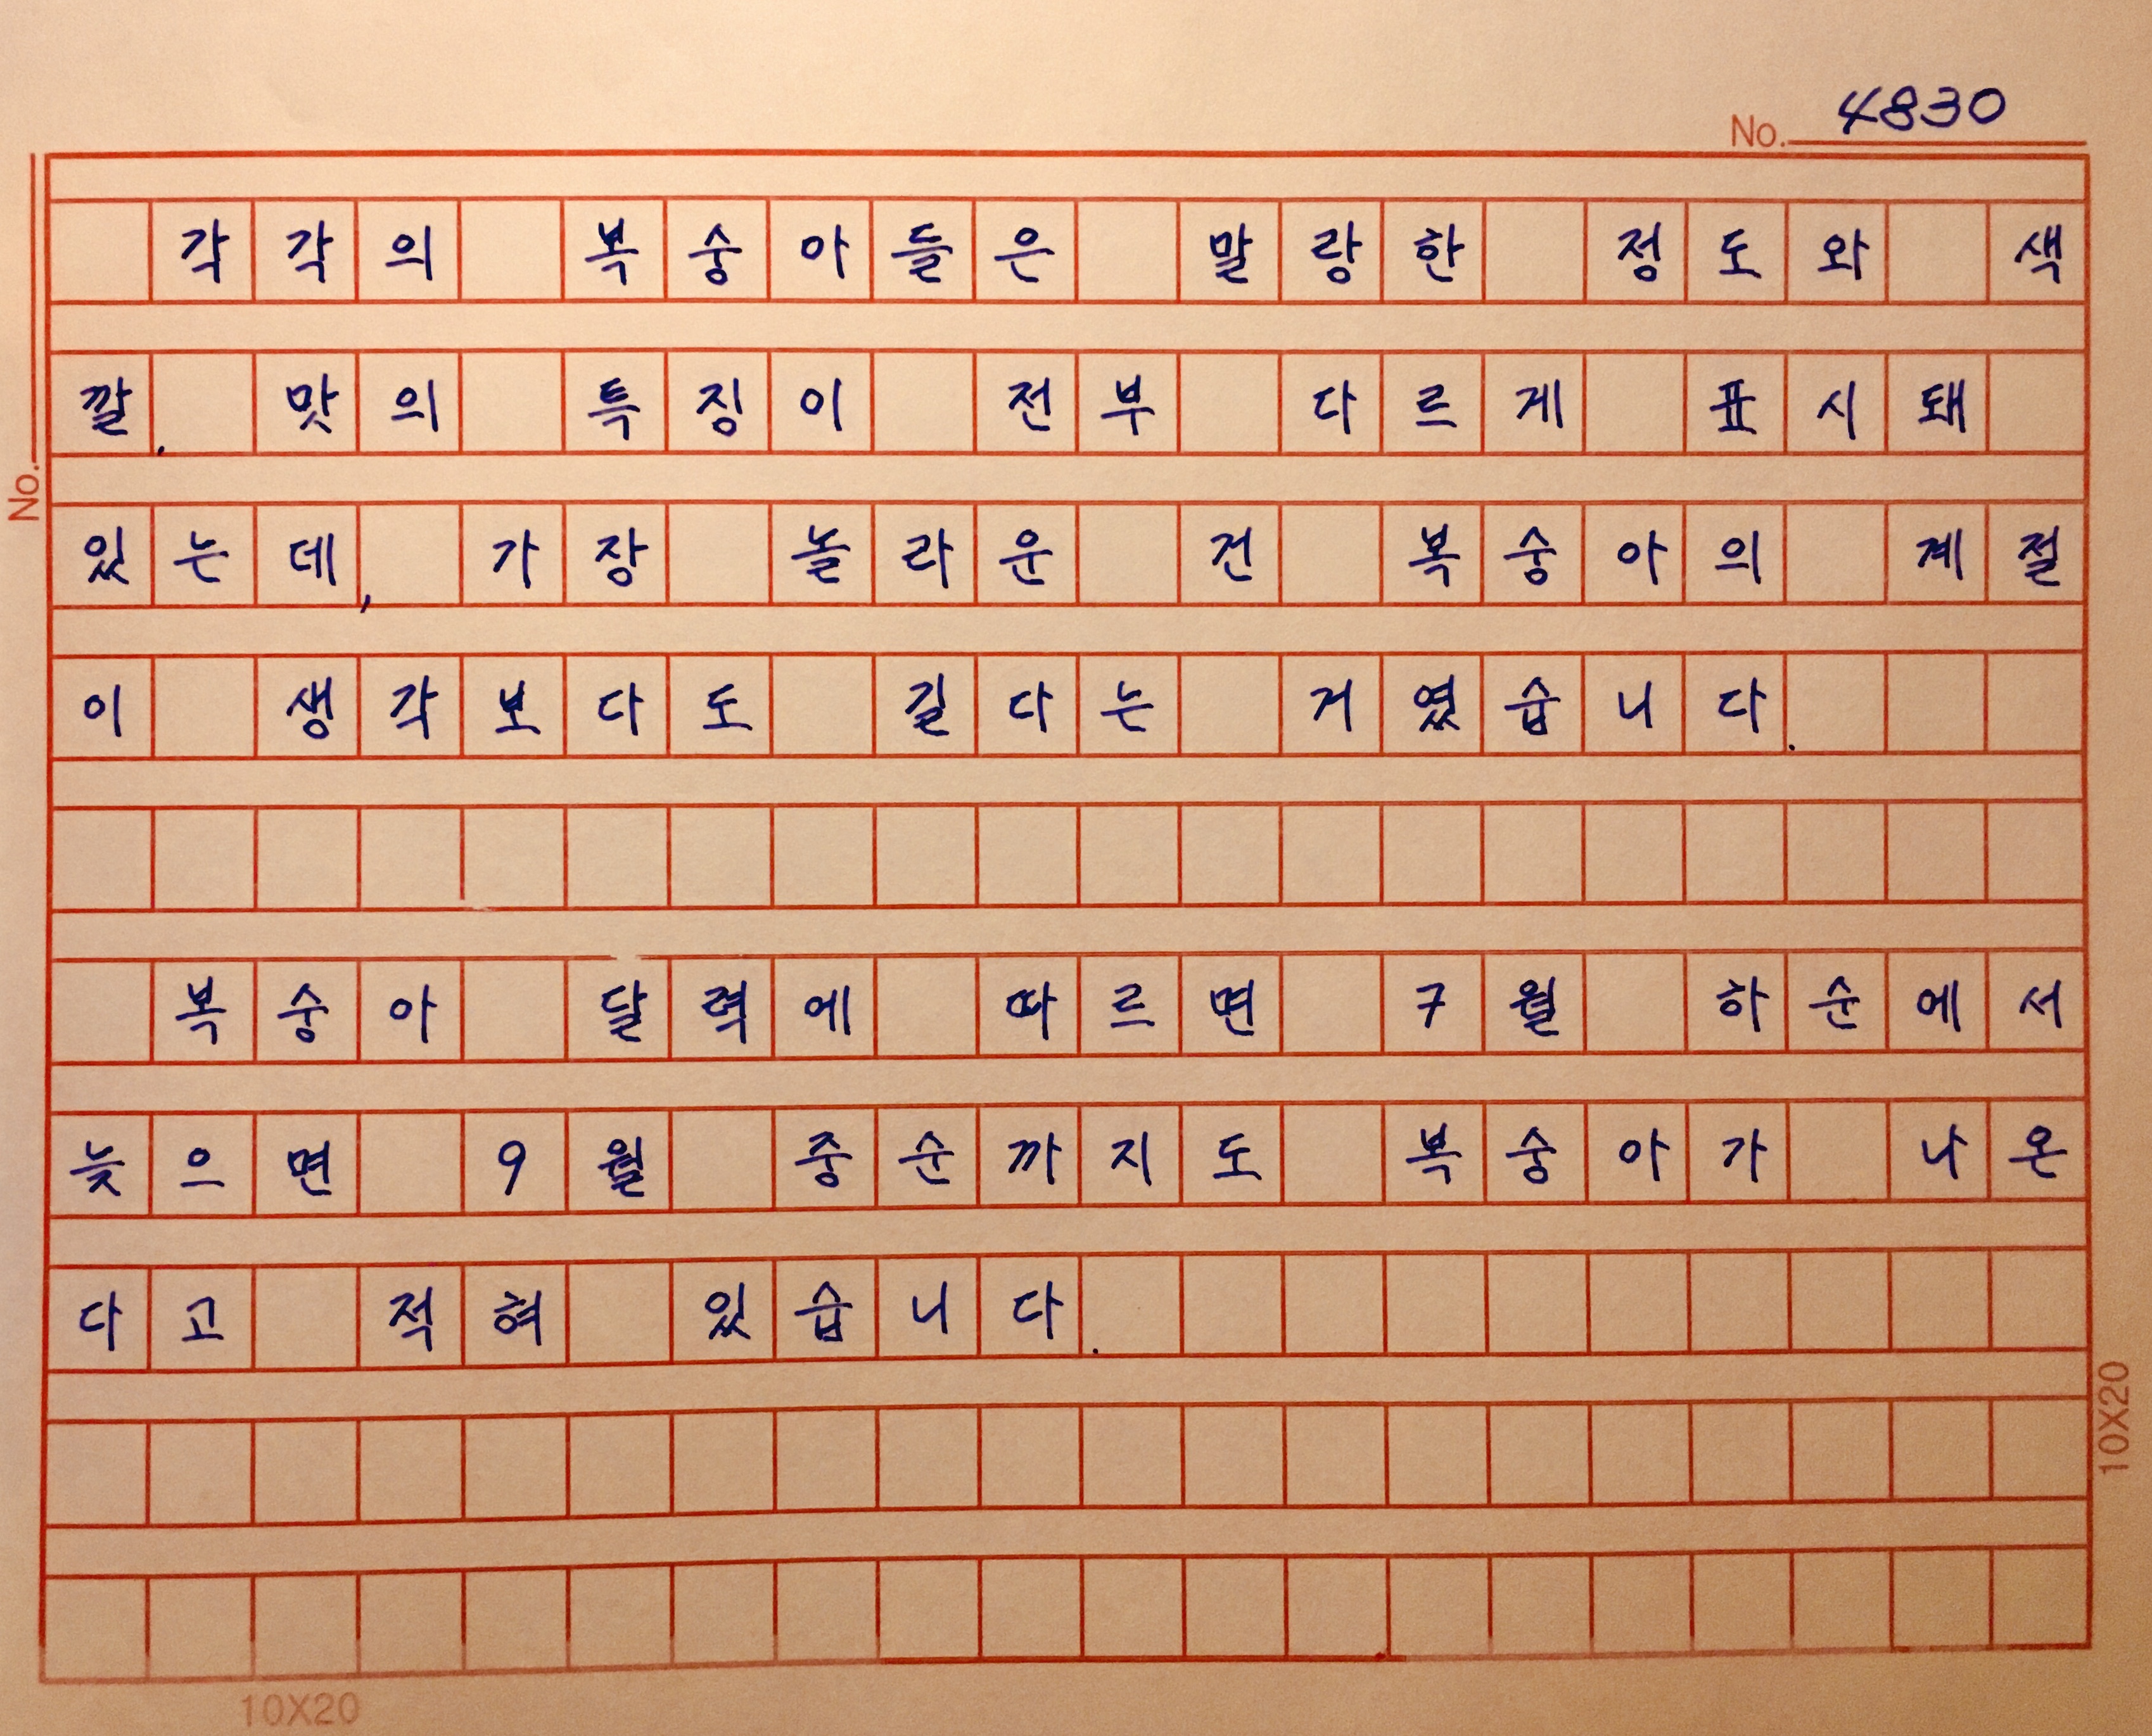 No. 4830
각각의 복숭아들은 말랑한 정도와 색
깔. 맛의 특징이 전부 다르게 표시돼
있는데, 가장 놀라운 건 복숭아의 계절
이 생각보다도 길다는 거였습니다.
복숭아 달력에 따르면 7월 하순에서
늦으면 9월 중순까지도 복숭아가 나온
다고 적혀 있습니다.
No.
10X20
10X20